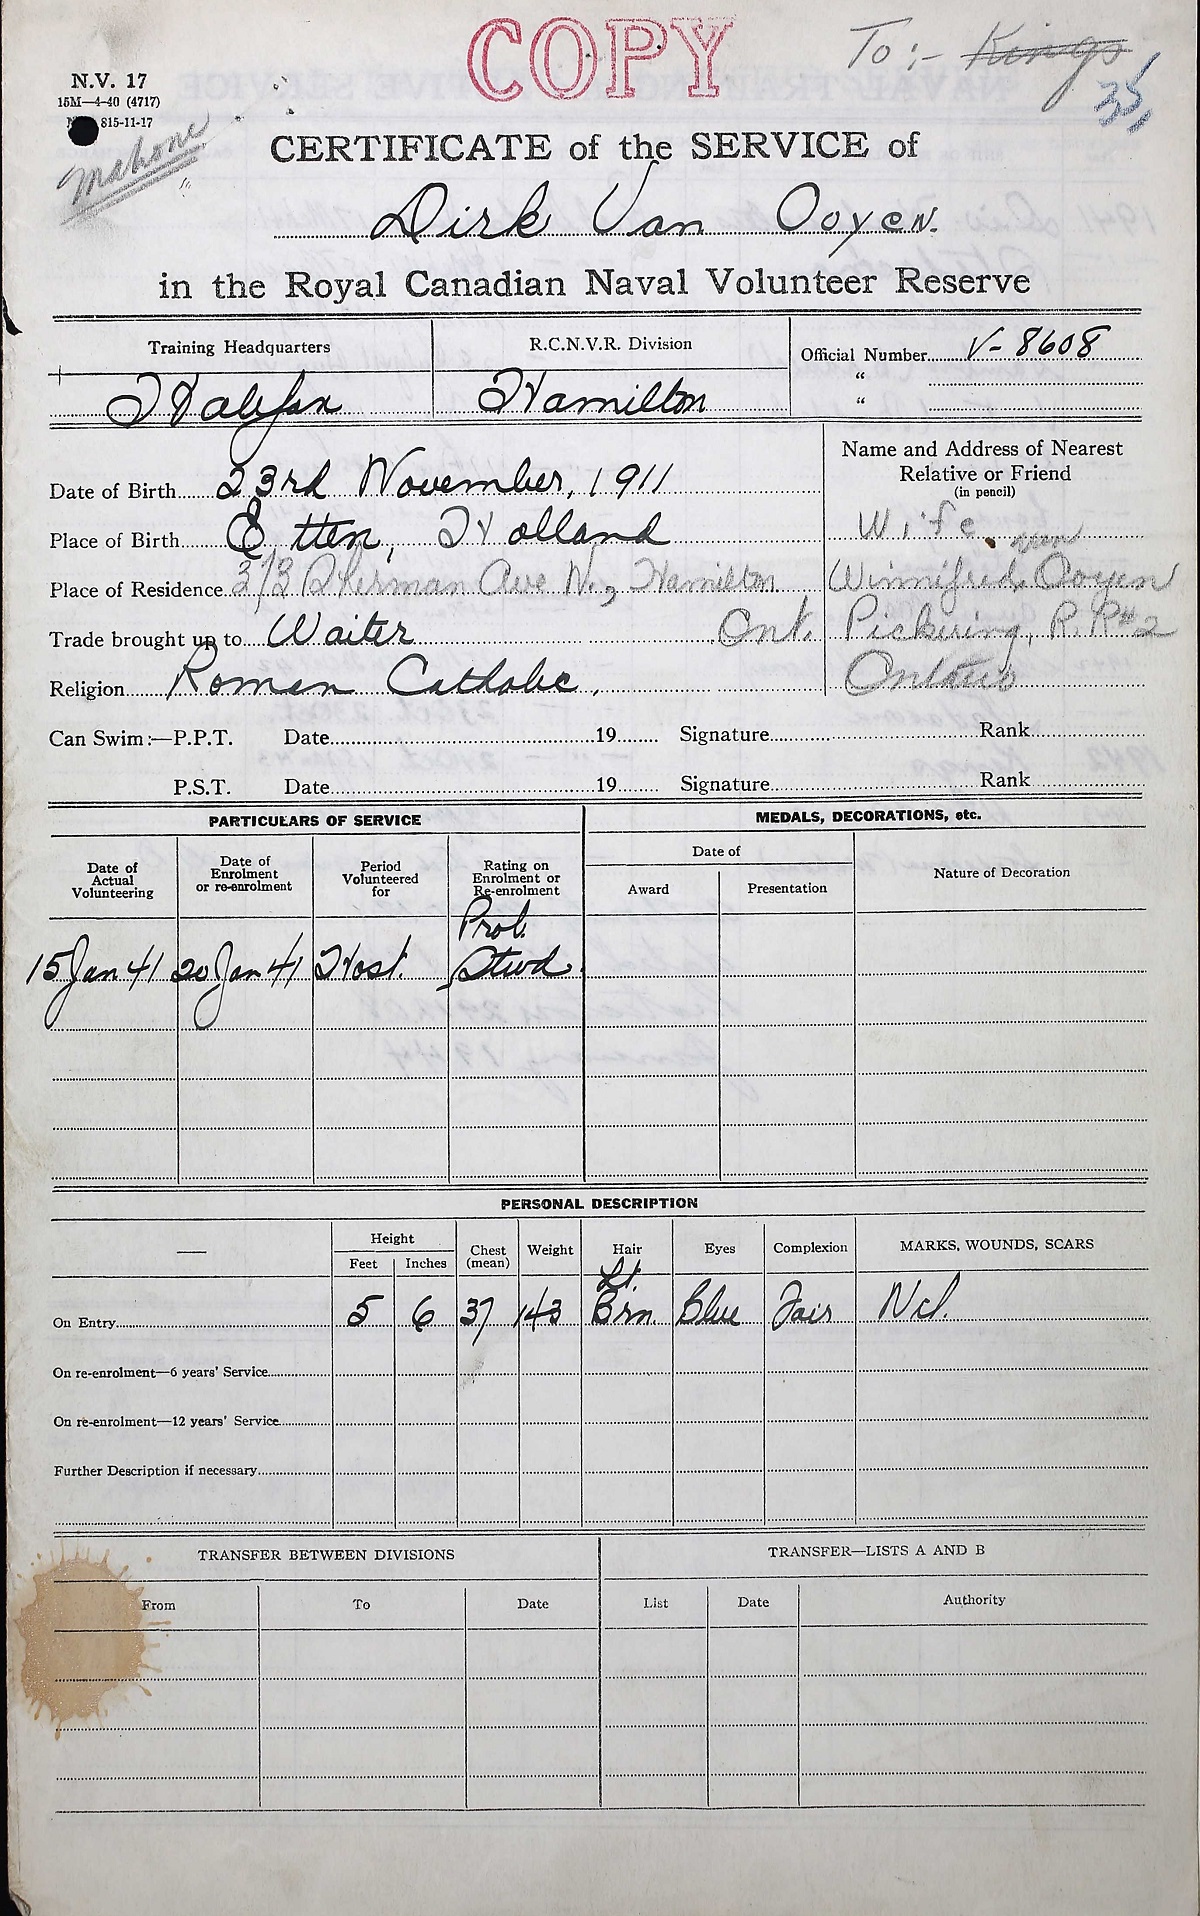 COPY
To:- Kings
35,
N.V. 17
15M—4-40 (4717)
815-11-17
Mahone
CERTIFICATE of the SERVICE of
Dirk Van Ooyen.
in the Royal Canadian Naval Volunteer Reserve
Training Headquarters
Halifax
R.C.N.V.R. Division
Hamilton
Official Number V-8608
"
"
Date of Birth 23rd November, 1911
Place of Birth Etten, Holland
Place of Residence 313 Sherman Ave N., Hamilton
Ont.
Trade brought up to Waiter
Religion Roman Catholic.
Name and Address of Nearest
Relative or Friend
(in pencil)
Wife.
van
Winnifred Ooyen
Pickering, R.R#2
Ontario
Can Swim:—P.P.T. Date 19 Signature Rank
P.S.T. Date 19 Signature Rank
PARTICULARS OF SERVICE
Date of
Actual
Volunteering
Date of
Enrolment
or re-enrolment
Period
Volunteered
for
Rating on
Enrolment or
Re-enrolment
15 Jan 41 20 Jan 41 Host. Prob.
Stwd.
MEDALS, DECORATIONS, etc.
Date of
Award Presentation
Nature of Decoration
PERSONAL DESCRIPTION
—
Height
Feet Inches
Chest
(mean)
Weight
Hair
Eyes
Complexion
MARKS, WOUNDS, SCARS
Lt.
On Entry 5 6 37 143 Brn. Blue Fair Nil.
On re-enrolment—6 years' Service
On re-enrolment—12 years' Service
Further Description if necessary
TRANSFER BETWEEN DIVISIONS
From To Date
TRANSFER—LISTS A AND B
List Date Authority